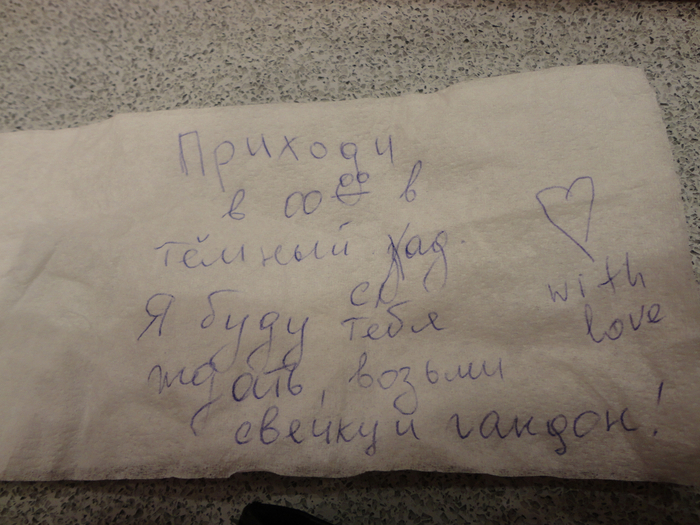 Приходи
в 00⁰⁰ в
тёмный сад.
Я буду тебя
ждать, возьми
свечку и гандон!
with
love